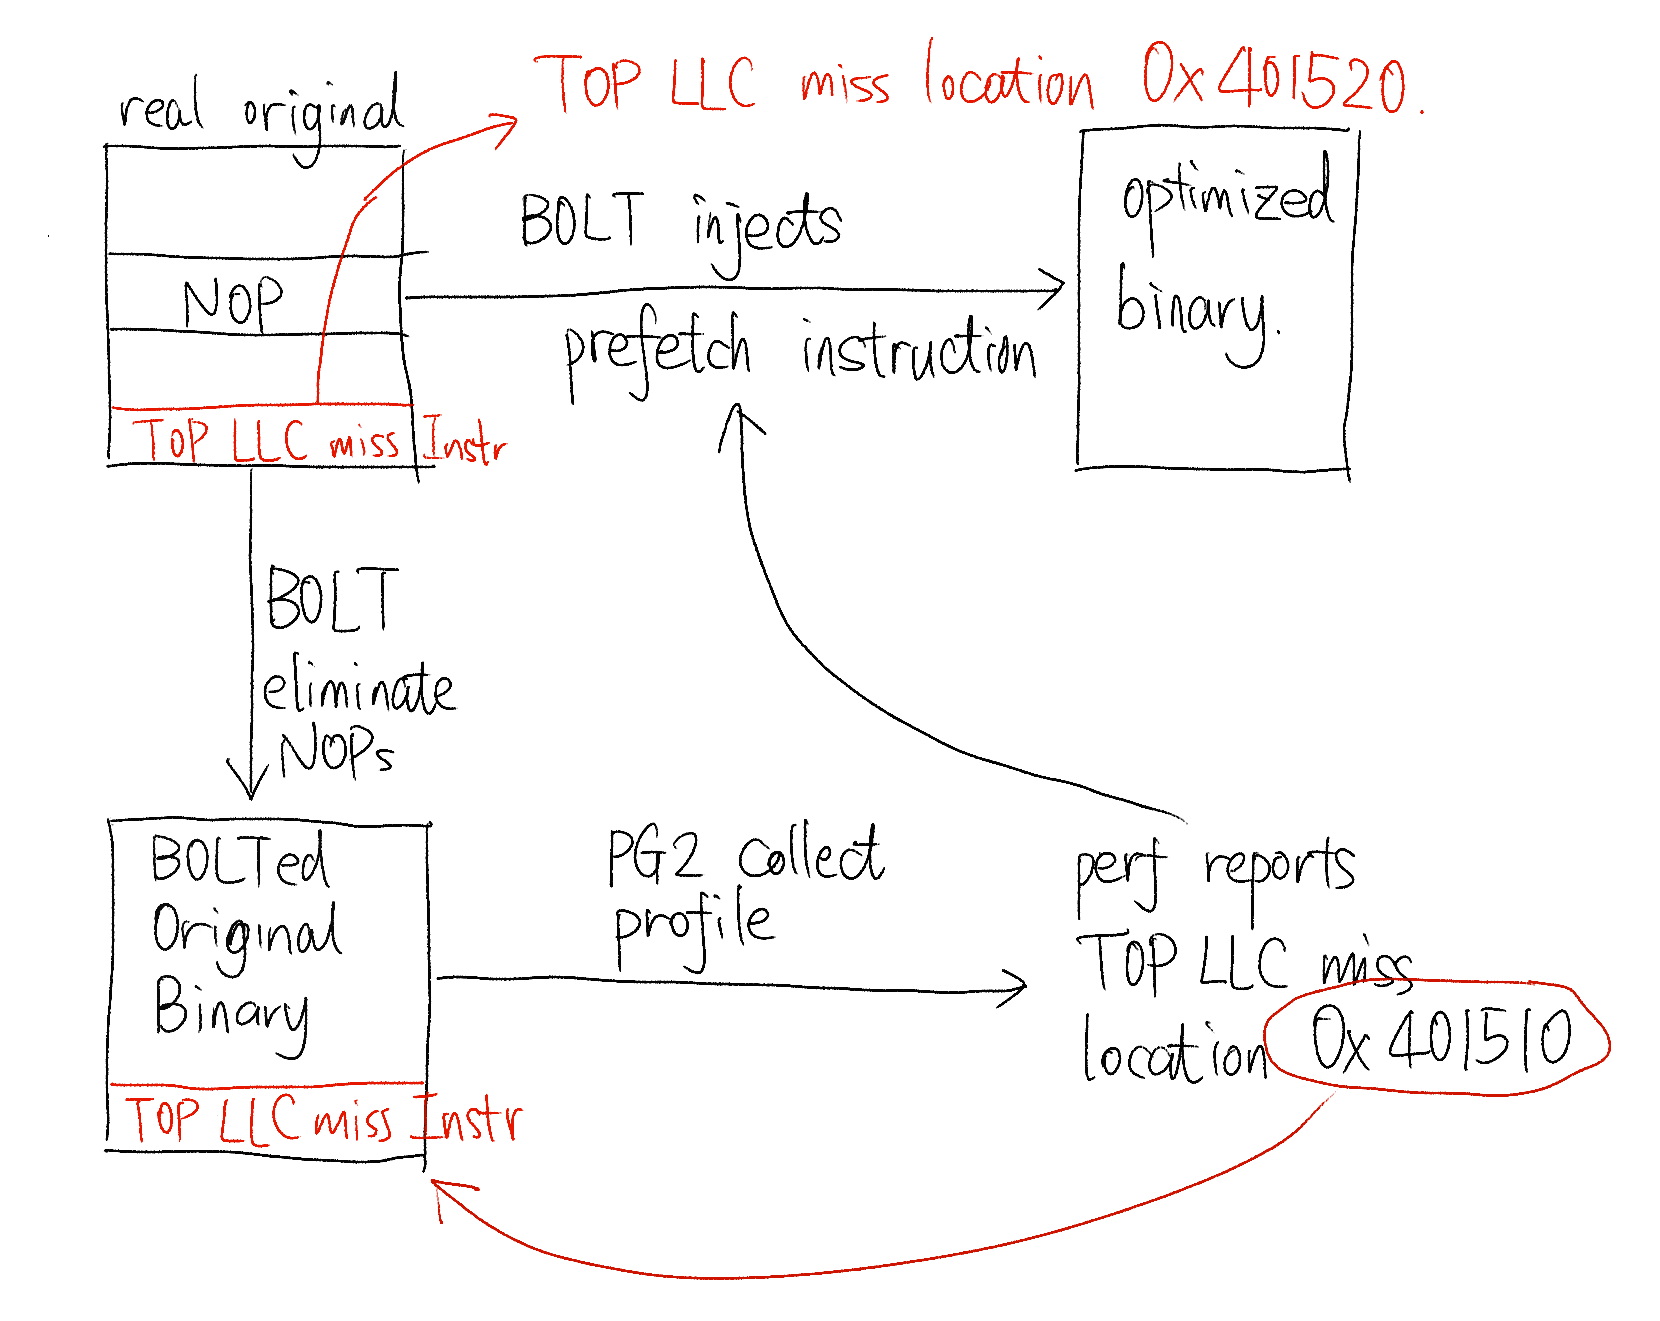 TOP LLC miss location 0x401520.
real original
NOP
TOP LLC miss Instr
BOLT injects
prefetch instruction
optimized
binary.
BOLT
eliminate
NOPs
BOLTed
Original
Binary
TOP LLC miss Instr
PG2 collect
profile
perf reports
TOP LLC miss
location 0x401510